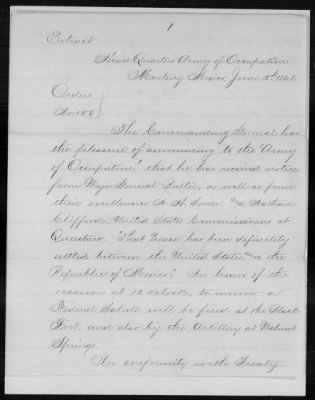 1
Extract.
Head Quarters Army of Occupation
Monterey Mexico June 12th 1848
Orders
No. 156
The Commanding General has
the pleasure of announcing to the "Army
of Occupation" that he has received notice
from Major General Butler, as well as from
their excellencies A. H. Sevier and Nathan
Clifford, United States Commissioners at
Queretaro. "That Peace has been definitely
settled between the United States, and the
Republic of Mexico". In honor of the
occasion at 12 o'clock, to morrow a
Federal Salute will be fired at the Black
Fort, and also by the Artillery at Walnut
Springs.
In conformity with Treaty